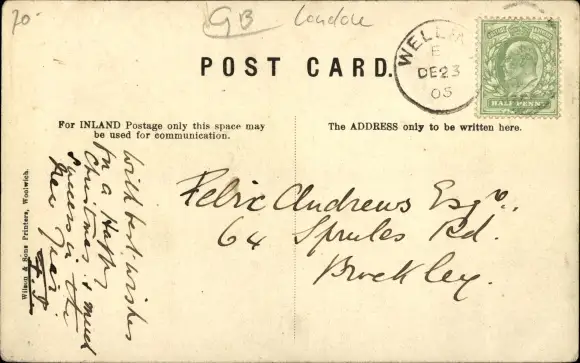 20
GB London
POST CARD.
WELLIN
E
DE 23
05
HALF PENNY
For INLAND Postage only this space may
be used for communication.
The ADDRESS only to be written here.
Wilson & Sons Printers, Woolwich.
With best wishes
for a Happy
Christmas & much
success in the
New Year
Felix Andrews Esqr.,
64 Sprules Rd.
Brockley.